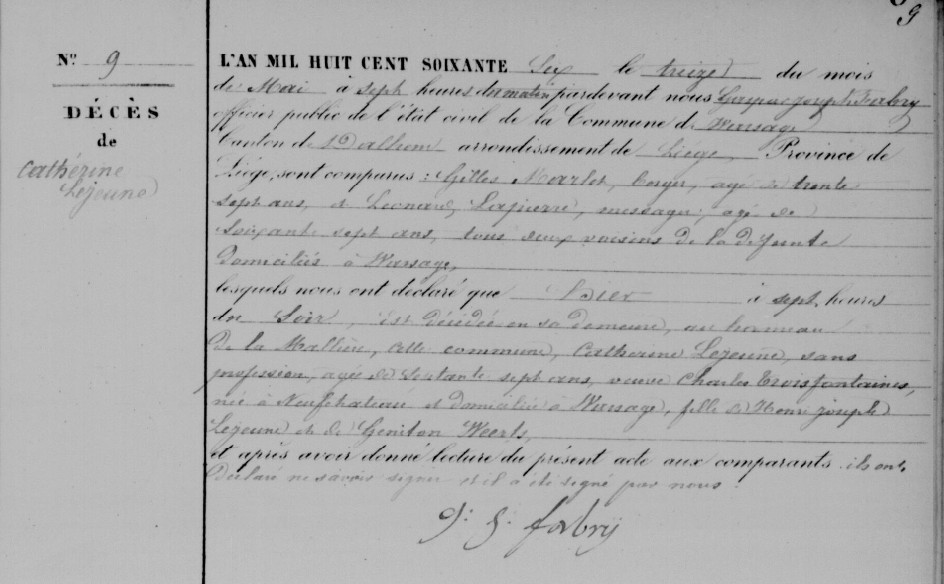 9
N° 9
DÉCÈS
de
Cathérine
Lejeune
L'AN MIL HUIT CENT SOIXANTE Six le treize du mois
de Mai à sept heures du matin pardevant nous Gaspar Joseph Fabry
officier public de l'état civil de la Commune de Warsage
Canton de Dalhem arrondissement de Liége, Province de
Liége, sont comparus : Gilles Marlet, berger, agé de trente
sept ans, et Leonard Lapierre, messager, agé de
Soixante sept ans, tous deux voisins de la defunte
domiciliés à Warsage,
lesquels nous ont déclaré que hier à sept heures
du Soir, est décédée en sa demeure, au hameau
de la Mallieu, cette commune, Catherine Lejeune, sans
profession, agée de septante sept ans, veuve Charles Troisfontaines,
née à Neufchateau et domiciliée à Warsage, fille de Henri joseph
Lejeune et de Geniton Weerts,
et après avoir donné lecture du présent acte aux comparants ils ont
déclaré ne savoir signer et il a été signé par nous.
g. j. fabry